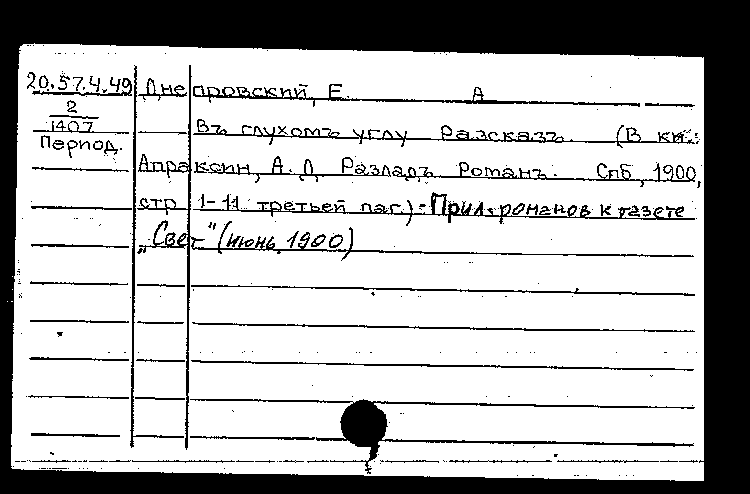 20.57.4.49 Днепровский, Е. А
2
1407
Въ глухомъ углу Разсказъ. (В кн.:
Период.
Апраксин, А. Д. Разладъ Романъ. Спб, 1900,
стр 1-11 третьей паг.) - Прил. романов к газете
„Свет" (июнь 1900)